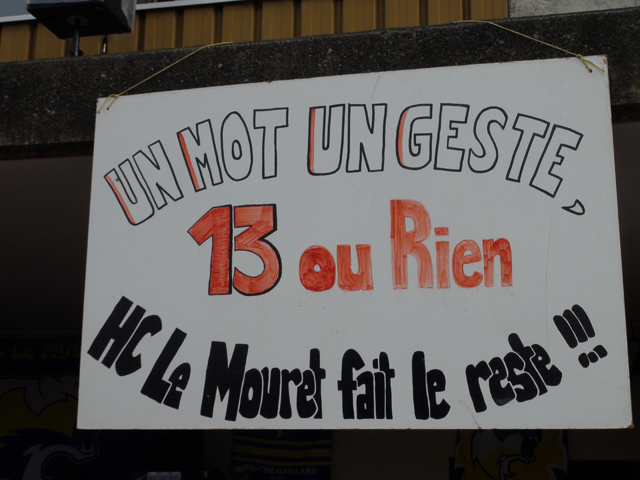 UN MOT UN GESTE,
13 ou Rien
HC Le Mouret fait le reste !!!